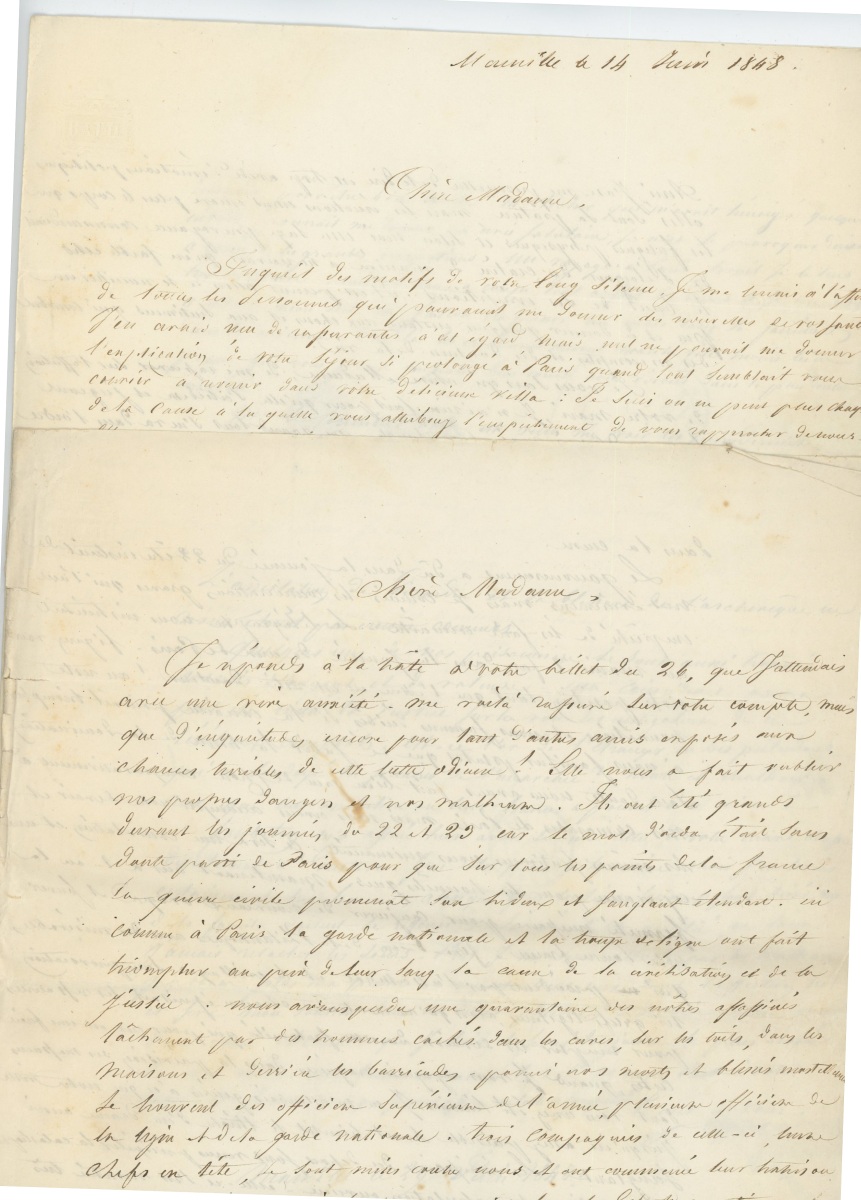 Marseille le 14 Juin 1848.
Chère Madame,
Inquiet des motifs de votre long silence, Je me tenais à l'affut
de toutes les personnes qui pouvaient me donner des nouvelles de vos santés
J'en avais eu de rassurantes à cet égard mais nul ne pouvait me donner
l'explication de votre séjour si prolongé à Paris quand tout semblait vous
convier à venir dans votre délicieuse villa : Je suis on ne peut plus
de la cause à la quelle vous attribuez l'empêchement de vous rapprocher de nous.
Chère Madame,
Je réponds à la hâte à votre billet du 26, que J'attendais
avec une vive anxiété. me voilà rassuré sur votre compte, mais
que d'inquiétudes encore pour tant d'autres amis exposés aux
chances terribles de cette lutte odieuse ! Elle nous a fait oublier
nos propres dangers et nos malheurs. Ils ont été grands
durant les journées du 22 et 23 car le mot d'ordre était sans
doute parti de Paris pour que sur tous les points de la france
la guerre civile promenât son hideux et sanglant étendard. ici
comme à Paris la garde nationale et la troupe de ligne ont fait
triompher au prix de leur sang la cause de la civilisation et de la
Justice. nous avons perdu une quarantaine des nôtres assassinés
lâchement par des hommes cachés dans les caves, sur les toits, dans les
maisons et derrière les barricades. parmi nos morts et blessés mortellement
se trouvent des officiers supérieurs de l'armée, plusieurs officiers de
la ligne et de la garde nationale. trois compagnies de celle-ci,
chefs en tête, se sont mises contre nous et ont commencé leur trahison